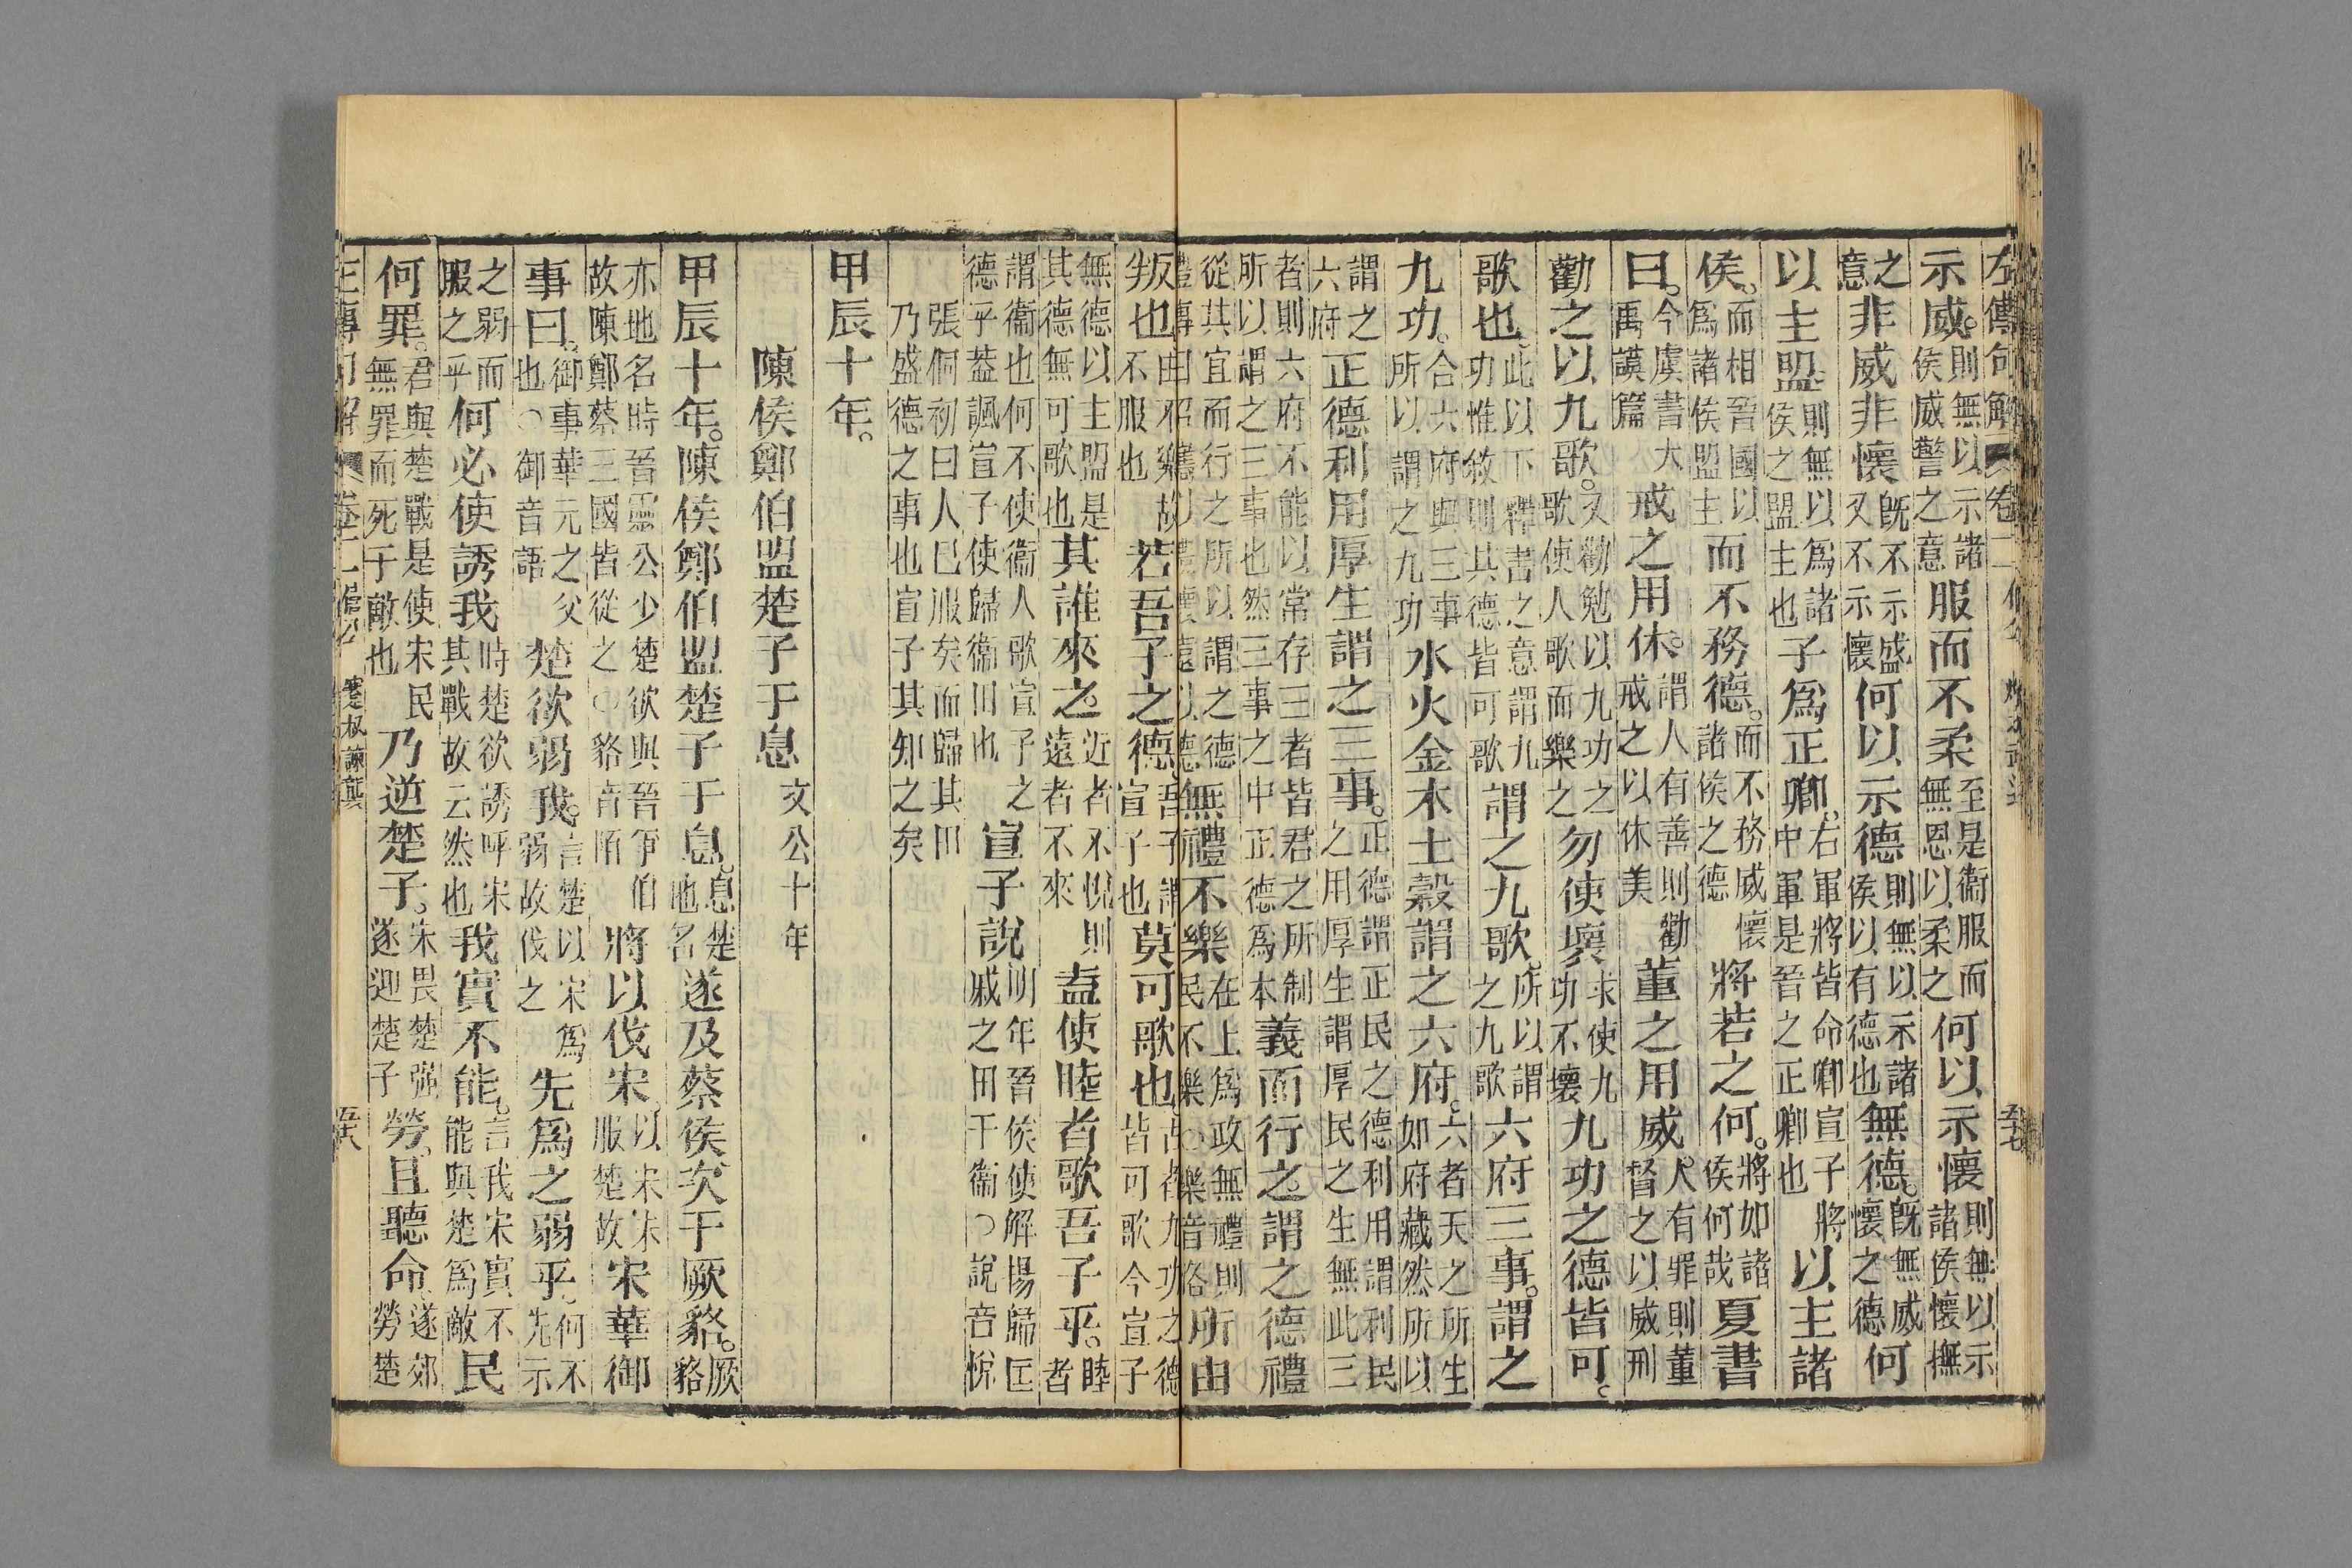 左傳句解 卷二
示威。則無以示諸侯威警之意服而不柔至是衛服而無恩以柔之何以示懷則無以示諸侯懷撫
之意非威非懷旣不示盛又不示懷何以示德則無以示諸侯以有德也無德。旣無威懷之德何
以主盟則無以爲諸侯之盟主也子爲正卿。右軍將皆命卿宣子將中軍是晉之正卿也以主諸
侯。而相晉國以爲諸侯盟主而不務德。而不務威懷諸侯之德將若之何。將如諸侯何哉夏書
曰。今虞書大禹謨篇戒之用休。謂人有善則勸戒之以休美董之用威。人有罪則董督之以威刑
勸之以九歌。又勸勉以九功之歌使人歌而樂之勿使壞求使九功不壞九功之德皆可。
歌也。此以下釋書之意謂九功惟敘則其德皆可歌謂之九歌。所以謂之九歌六府三事。謂之
九功。合六府與三事所以謂之九功水火金木土穀謂之六府。六者天之所生如府藏然所以
謂之六府正德利用厚生謂之三事。正德謂正民之德利用謂利民之用厚生謂厚民之生無此三
者則六府不能以常存三者皆君之所制所以謂之三事也然三事之中正德爲本義而行之謂之德禮
從其宜而行之所以謂之德禮專由招攜以禮懷遠以德無禮不樂在上爲政無禮則民不樂○樂音洛所由
叛也由不樂故不服也若吾子之德吾子謂宣子也莫可歌也。古者九功之德皆可歌今宣子
無德以主盟是其德無可歌也其誰來之近者不悅則遠者不來盍使睦者歌吾子乎。睦者
謂衛也何不使衛人歌宣子之德乎蓋諷宣子使歸衛田也宣子說明年晉侯使解揚歸匡戚之田于衛○說音悅
張侗初曰人已服矣而歸其田乃盛德之事也宣子其知之矣
甲辰十年。
陳侯鄭伯盟楚子于息 文公十年
甲辰十年。陳侯鄭伯盟楚子于息。息楚地名遂及蔡侯次于厥貉。厥貉
亦地名時晉靈公少楚欲與晉爭伯故陳鄭蔡三國皆從之○貉音陌將以伐宋。以宋未服楚故宋華御
事曰。御事華元之父也○御音語楚欲弱我。言楚以宋爲弱故伐之先爲之弱乎。何不先示
之弱而服之乎何必使誘我時楚欲誘呼宋其戰故云然也我實不能。言我宋實不能與楚爲敵民
何罪。君與楚戰是使宋民無罪而死于敵也乃逆楚子。宋畏楚强遂迎楚子勞。且聽命。遂郊勞楚